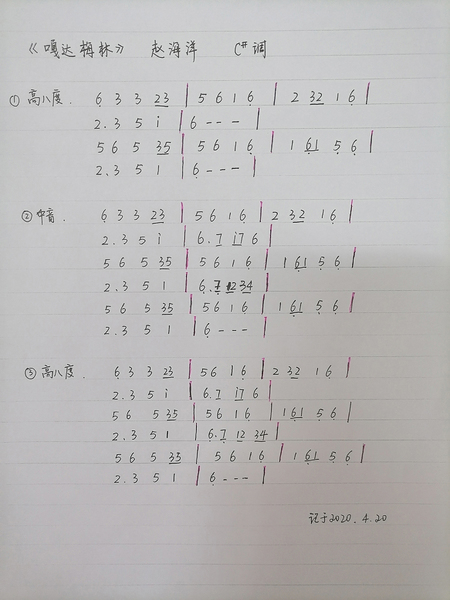 《嘎达梅林》 赵海洋 C#调
① 高八度. 6̣ 3 3 2̲3̲ | 5 6 1 6̣ | 2 3̲2̲ 1 6̣ |
2. 3 5 i | 6 - - - |
5 6 5 3̲5̲ | 5 6 1 6̣ | 1 6̣̲1̲ 5̣ 6̣ |
2. 3 5 1 | 6̣ - - - |
② 中音. 6̣ 3 3 2̲3̲ | 5 6 1 6̣ | 2 3̲2̲ 1 6̣ |
2. 3 5 i | 6. 7 i̲7̲ 6 |
5 6 5 3̲5̲ | 5 6 1 6̣ | 1 6̣̲1̲ 5̣ 6̣ |
2. 3 5 1 | 6̣. 7̣ 1̲2̲ 3̲4̲ |
5 6 5 3̲5̲ | 5 6 1 6̣ | 1 6̣̲1̲ 5̣ 6̣ |
2. 3 5 1 | 6̣ - - - |
③ 高八度. 6̣ 3 3 2̲3̲ | 5 6 1 6̣ | 2 3̲2̲ 1 6̣ |
2. 3 5 i | 6. 7 i̲7̲ 6 |
5 6 5 3̲5̲ | 5 6 1 6̣ | 1 6̣̲1̲ 5̣ 6̣ |
2. 3 5 1 | 6̣. 7̣ 1̲2̲ 3̲4̲ |
5 6 5 3̲5̲ | 5 6 1 6̣ | 1 6̣̲1̲ 5̣ 6̣ |
2. 3 5 1 | 6̣ - - - |
记于2020.4.20